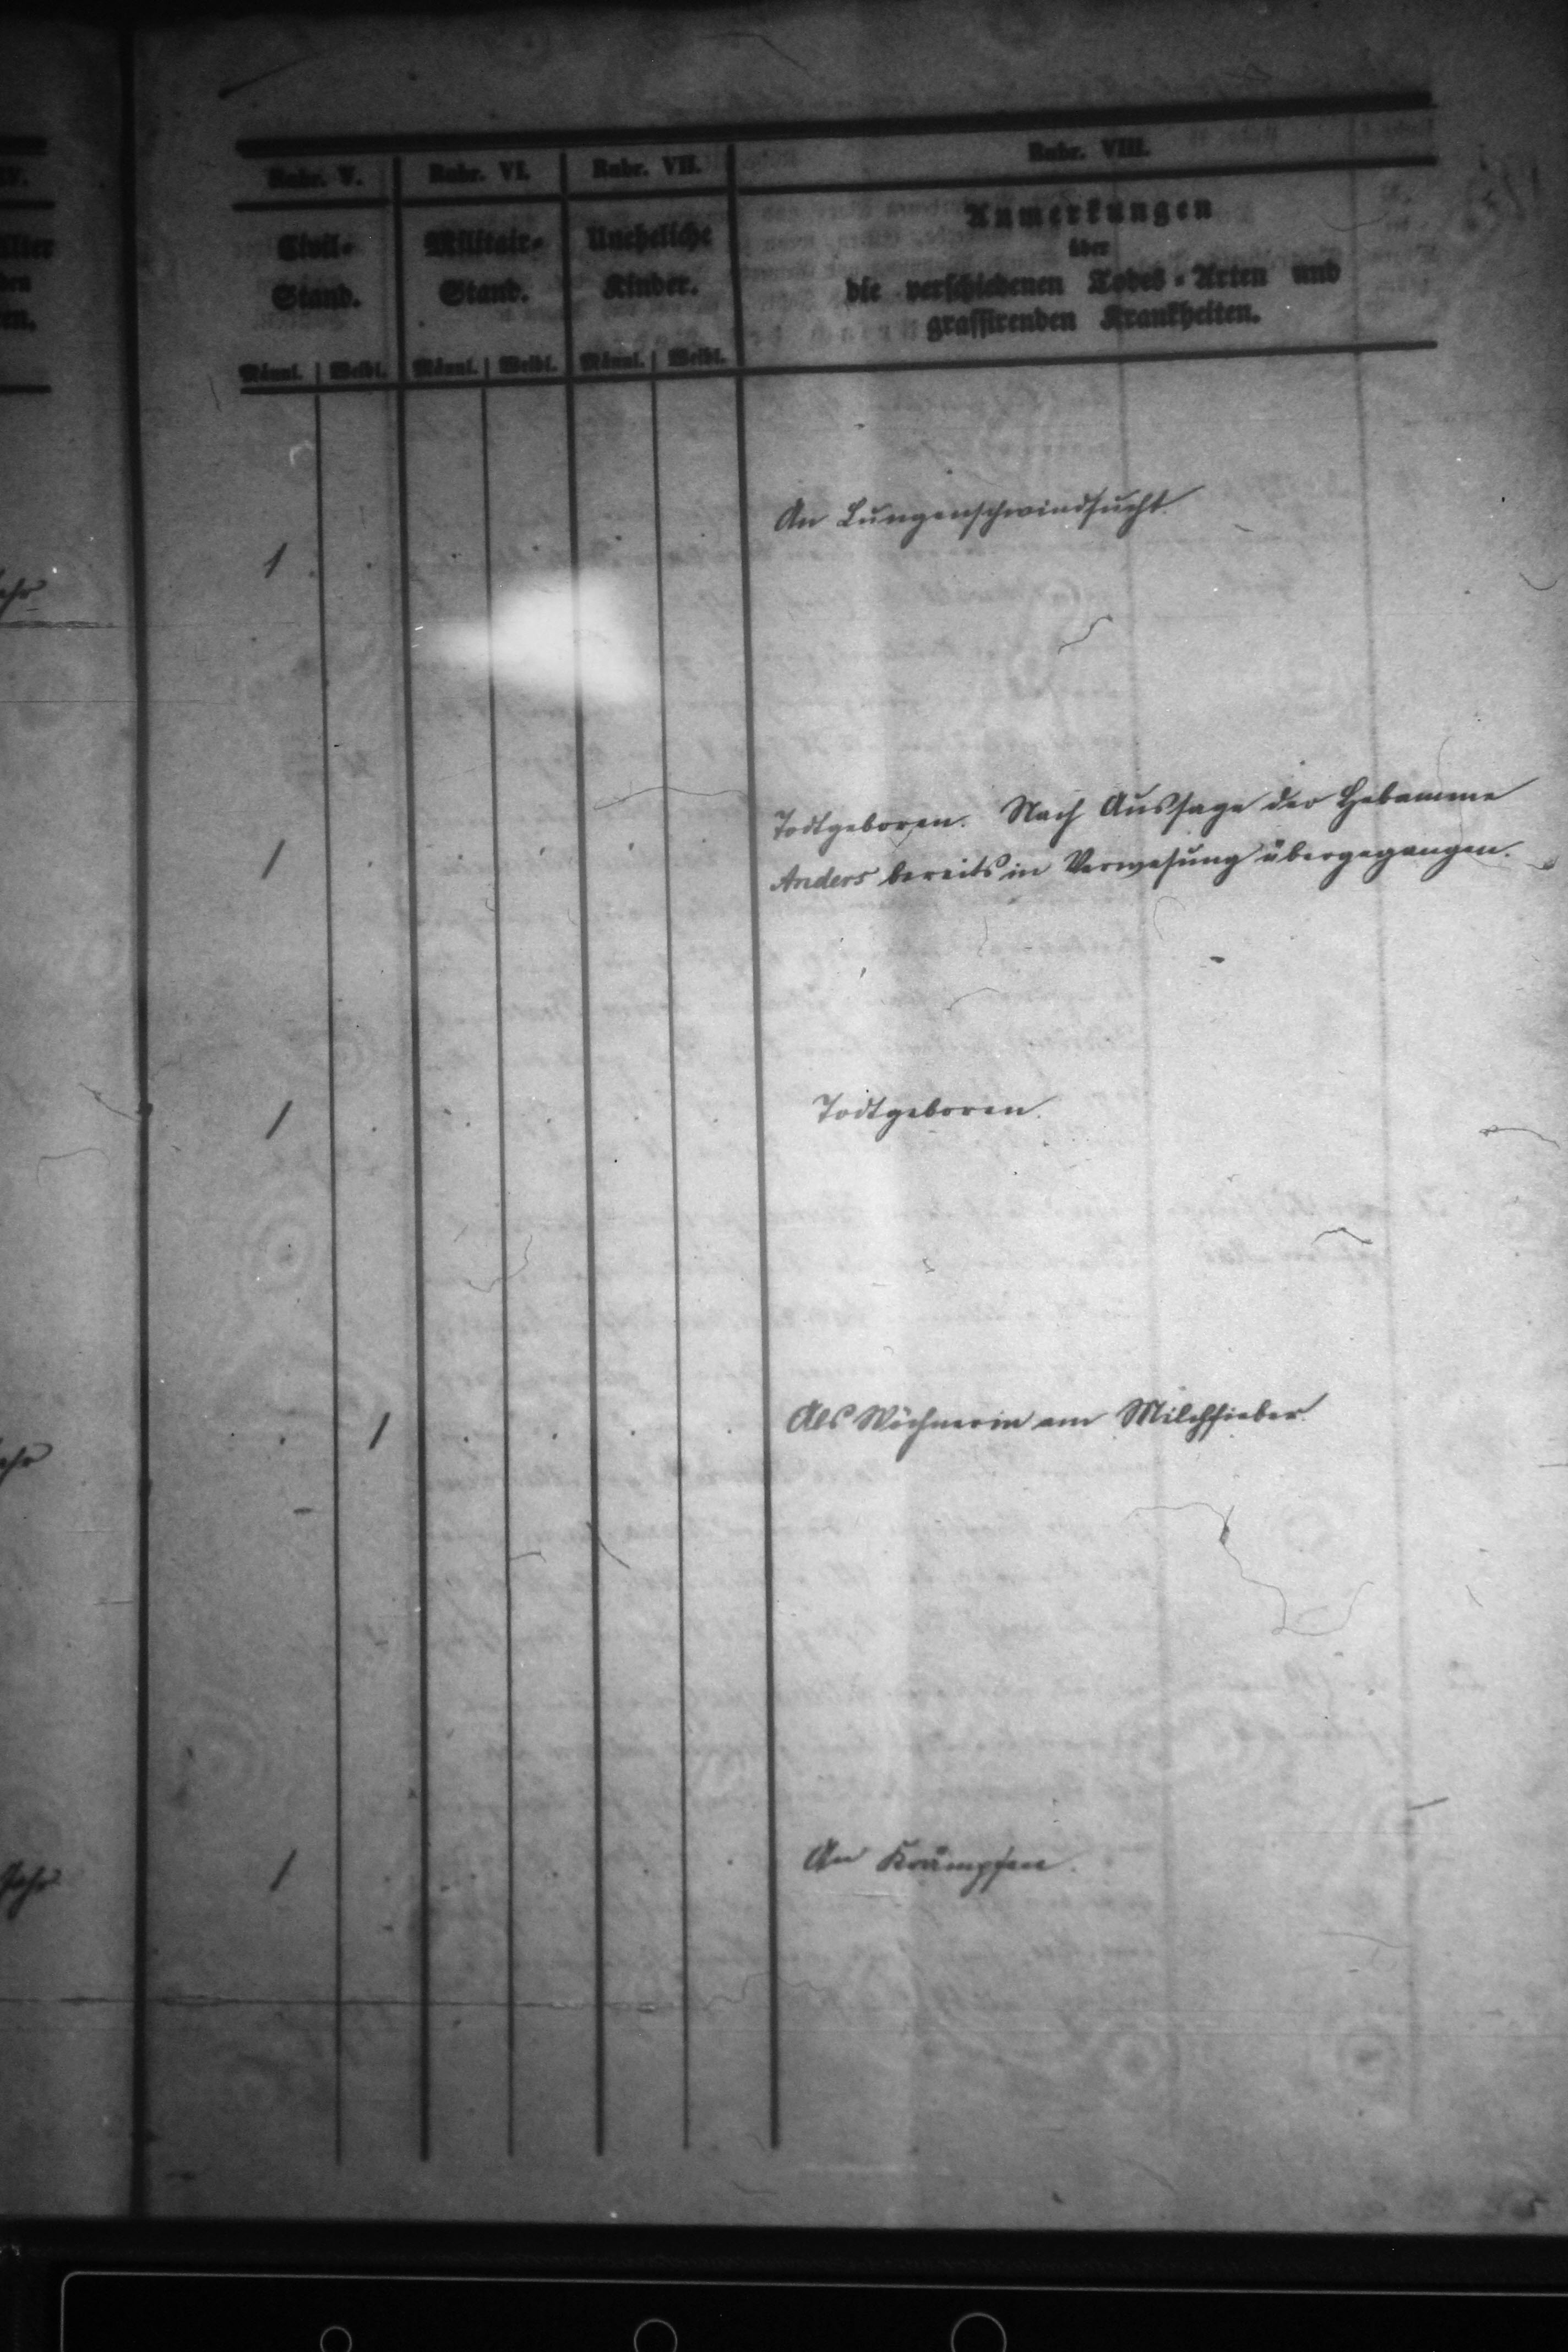 Rubr. V. Rubr. VI. Rubr. VII. Rubr. VIII.
Civil- Militair- Uneheliche Anmerkungen
Stand. Stand. Kinder. über
die verschiedenen Todes-Arten und
grassirenden Krankheiten.
Männl. Weibl. Männl. Weibl. Männl. Weibl.
An Lungenschwindsucht.
1
Todtgeboren. Nach Aussage der Hebamme
1 Anders bereits in Verwesung übergegangen.
1 Todtgeboren.
1 Als Wöchnerin am Milchfieber.
1 An Krämpfen.